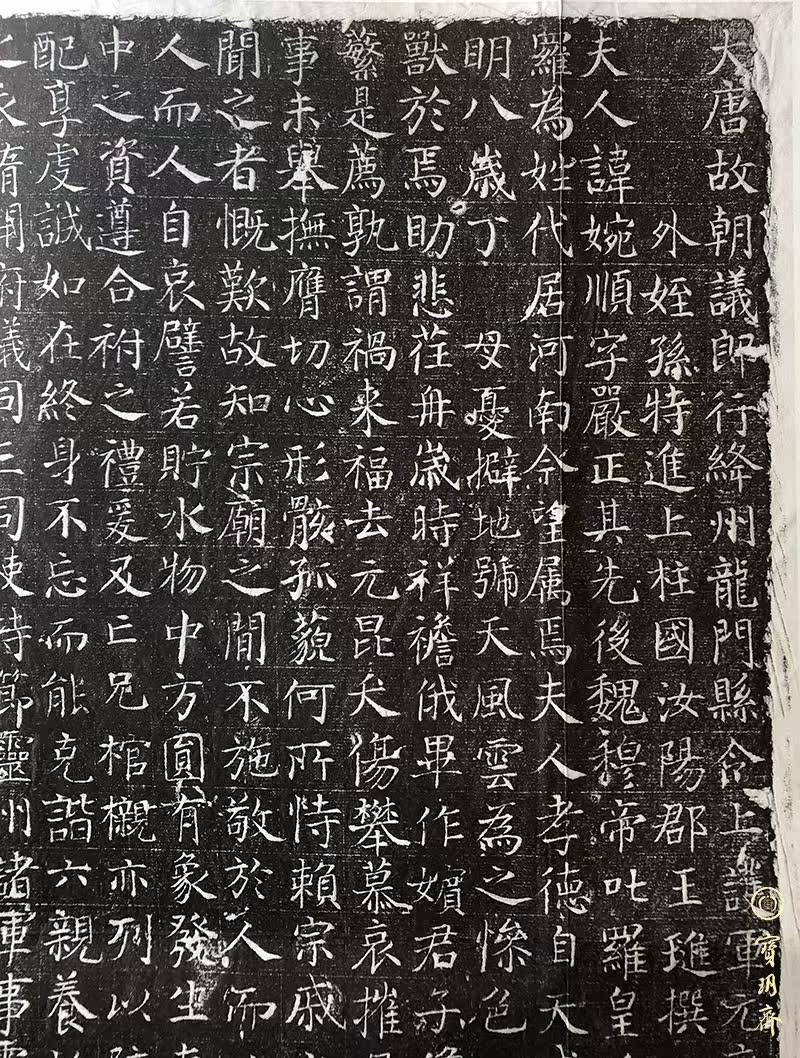 大唐故朝議郎行絳州龍門縣令上護軍元
外姪孫特進上柱國汝陽郡王璡撰
夫人諱婉順字嚴正其先後魏穆帝叱羅皇
羅為姓代居河南今望属焉夫人孝德自天
明八歲丁 母憂擗地號天風雲為之慘色
獸於焉助悲荏冉歲時祥禫俄畢作嬪君子
蘩是薦孰謂禍来福去元昆夭傷攀慕哀摧
事未舉撫膺切心形骸孤藐何所恃賴宗戚
聞之者慨歎故知宗廟之閒不施敬於人而
人而人自哀譬若貯水物中方圓有象發生
中之資遵合祔之禮爰及亡兄棺櫬亦列以
配享虔誠如在終身不忘而能克諧六親養
之衣隋開府儀同三司使持節靈州諸軍事
寶玥齋